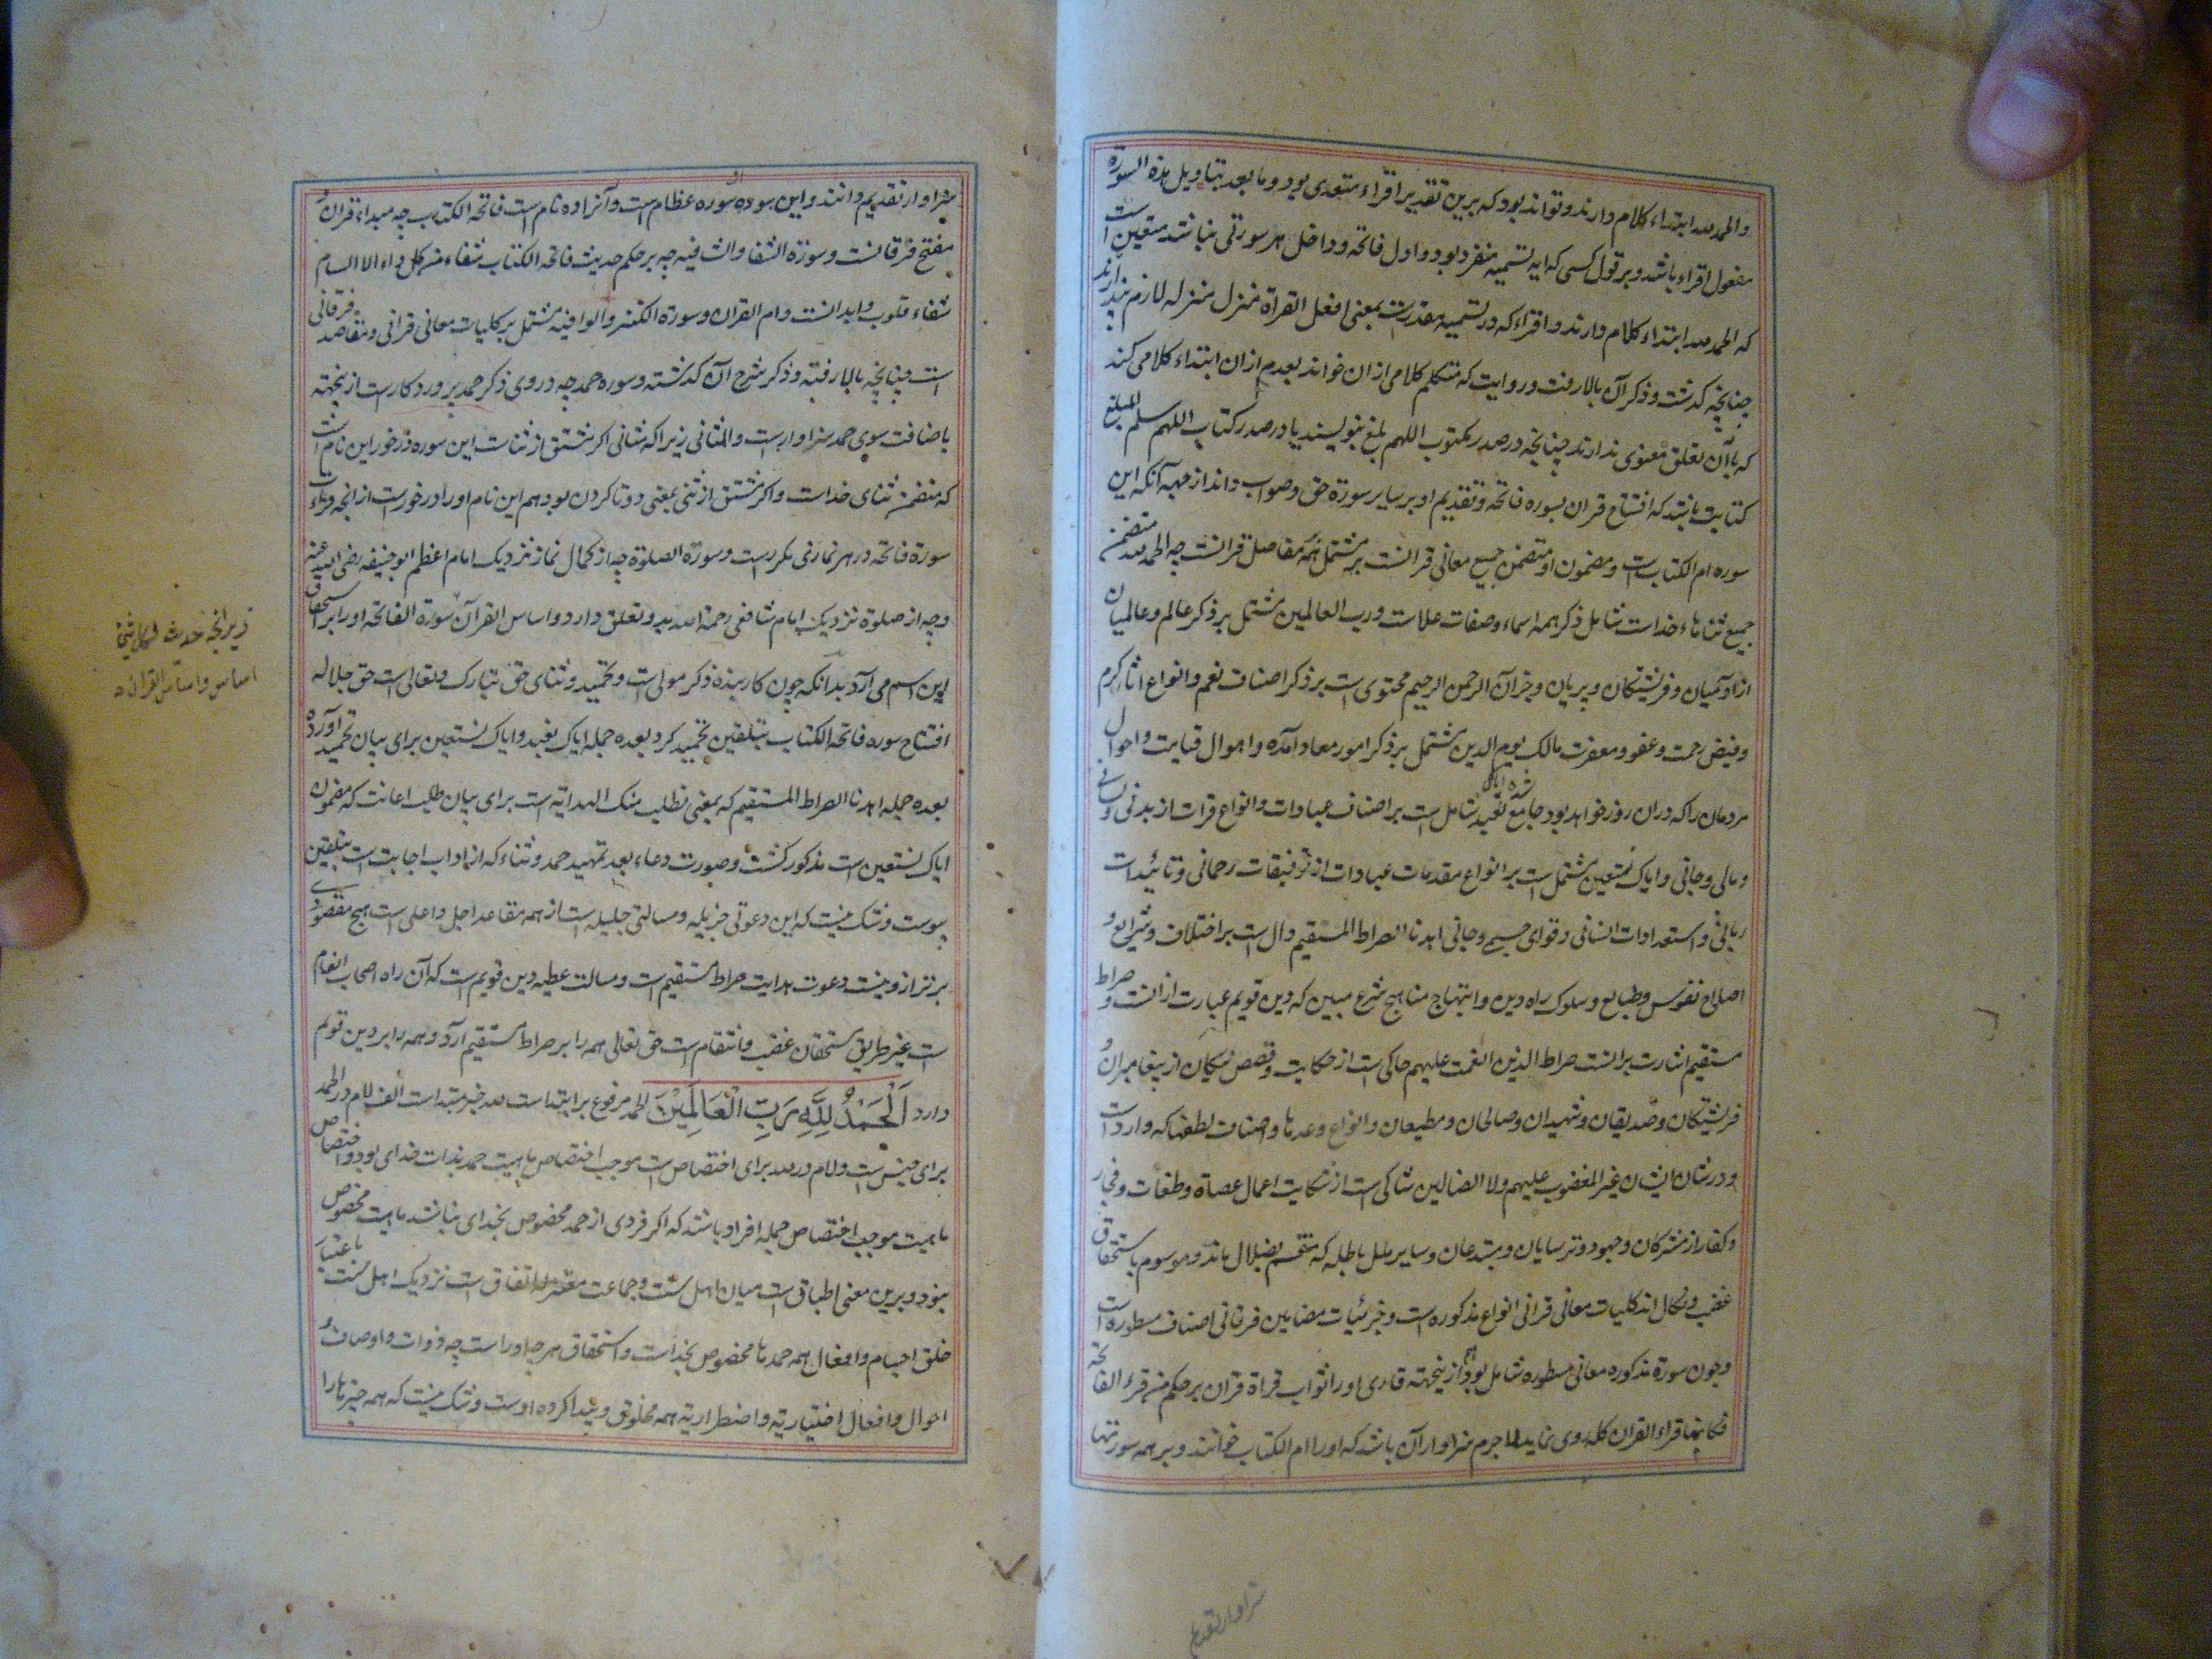 والحمد لله ابتداء کلام دارند و تواند بود که برین تقدیر اقراء متعدی بود و ما بعد بتاویل هذه السورة
مفعول اقراء باشد و بر قول کسی که ایه تسمیه منفرد بود و اول فاتحه و داخل هر سورتی نباشد متعین است
که الحمد لله ابتداء کلام دارند و اقراء که در تسمیه مقدرست بمعنی افعل القراة منزل منزله لازم پندارند
چنانچه کذشت و ذکر آن بالا رفت و روایت که متکلم کلامی از ان خواند بعدم از ان ابتداء کلامی کند
که با آن تعلق معنوی ندارند چنانچه در صدر مکتوب اللهم بلغ بنویسند یا در صدر کتاب اللهم سلم المبلغ
کتابت باشد که افتتاح قران بسوره فاتحه و تقدیم او بر سایر سورة حق و صواب داند از جهه آنکه این
سوره ام الکتاب است و مضمون او متضمن جمیع معانی قرانست بر مشتمل همه مفاصل قرانست چه الحمد لله متضمن
جمیع ثناهاء خداست شامل ذکر همه اسماء و صفات علاست و رب العالمین مشتمل بر ذکر عالم و عالمیان
از ادمیان و فریشتکان و پریان و جزآن الرحمن الرحیم محتوی است بر ذکر اصناف نعم و انواع اثار کرم
و فیض رحمت و عفو و مغفرت مالک یوم الدین مشتمل بر ذکر امور معاد آمده و اهوال قیامت و احوال
مردمان را که دران روز خواهد بود جامع شده ایاک نعبد شامل است بر اصناف عبادات و انواع قرات از بدنی و
و مالی و جانی و ایاک نستعین مشتمل است بر انواع مقدمات عبادات از توفیقات رحمانی و تائیدات
ربانی و استعدادات انسانی و قوای جسمی و جانی اهدنا الصراط المستقیم دال است بر اختلاف و شرایع و
اصلاح نفوس و طبایع و سلوک راه دین و ابتهاج مناهج شرع مبین که دین قویم عبارت ازانست و صراط
مستقیم اشارت برانست صراط الذین انعمت علیهم حاکی است از حکایت و قصص نیکان از پیغامبران و
فریشتکان و صدیقان و شهیدان و صالحان و مطیعان و انواع وعدها و اصناف لطفها که وارد است
و در شان ایشان غیر المغضوب علیهم ولا الضالین شاکی است از شکایت اعمال عصاة و طغات و فجار
و کفار از مشرکان و جهود و ترسایان و مبتدعان و سایر ملل باطله که متسم بضلال اند و موسوم باستحقاق
غضب و نکال اند کلیات معانی قرانی انواع مذکوره است و جزئیات مضامین فرقانی اصناف مسطوره است
و چون سورة مذکوره معانی مسطوره شامل بود هم ازینجهته قاری اورا ثواب قراة قران بر حکم من قرء الفاتحة
فکانما قراء القران کله روی نماید لا جرم سزاوار آن باشد که اورا ام الکتاب خوانند و بر همه سورتها
سزاوار تقدیم
سزاوار تقدیم دانند و این سوره سوره عظام است و آنرا ده نام است فاتحه الکتاب چه مبداء قران و
مفتح فرقانست و سوزة الشفا والشافیه چه بر حکم حدیث فاتحه الکتاب شفاء من کل داء الا السام
شفاء قلوب و ابدانست و ام القران و سورة الکنز و الوافیه مشتمل بر کلیات معانی قرانی و مقاصد فرقانی
است چنانچه بالا رفته و ذکر شرح آن کذشته و سوره حمد چه در وی ذکر حمد پروردکارست ازینجهته
باضافت سوی حمد سزاوارست و المثانی زیراکه مثانی اکر مشتق از ثناست این سوره در خور این نام است
که متضمن ثنای خداست و اکر مشتق از ثنی بمعنی دوتا کردن بود هم این نام اورا در خورست از انچه قراءت
سورة فاتحه در هر نمازی مکررست و سورة الصلوة چه از کمال نماز نزدیک امام اعظم ابو حنیفه رضی الله عنه
و چه از صلوة نزدیک امام شافعی رحمة الله بدو تعلق دارد و اساس القرآن سورة الفاتحه اورا بر استحقاق
این اسم می آرد بدانکه چون کار بنده ذکر مولی است و تحمید و ثنای حق تبارک و تعالی است حق جلاله
افتتاح سوره فاتحة الکتاب بتلقین تحمید کرد و بعده جمله ایاک نعبد و ایاک نستعین برای بیان تحمید آورده
بعده جمله اهدنا الصراط المستقیم که بمعنی نطلب منک الهدایة است برای بیان طلب اعانت که مضمون
ایاک نستعین است مذکور کشت و صورت دعاء بعد تمهید حمد و ثناء که از اداب اجابت است بتلقین
پیوست و شک نیست که این دعوتی جزیله و مسالتی جلیله است از همه مقاصد اجل و اعلی است هیچ مقصودی
برتر ازو نیست دعوت هدایت صراط مستقیم است و مسالت عطیه دین قویم است که آن راه اصحاب انعام
ست غیر طریق مستحقان غضب و انتقام است حق تعالی همه را بر صراط مستقیم آرد و همه را بر دین قویم
دارد اَلْحَمْدُ لِلّٰهِ رَبِّ الْعَالَمِیْنَ الحمد مرفوع بر ابتداست لله خبر مبتداست الف لام در الحمد
برای جنس است و لام در لله برای اختصاص است موجب اختصاص ماهیت حمد بذات خدای بود و اختصاص
ماهیت موجب اختصاص جمله افراد باشد که اکر فردی از حمد مخصوص بخدای نباشد ماهیت مخصوص
نبود و برین معنی اطباق است میان اهل سنت و جماعت معتزله اتفاق است نزدیک اهل سنت باعتبار
خلق اجسام و افعال همه حمدها مخصوص بخداست و استحقاق هر چه اوراست چه ذوات و اوصاف و
احوال و افعال اختیاریة و اضطراریة همه مخلوق و پیدا کرده اوست و شک نیست که همه چیزها را
اساس و اساس القران